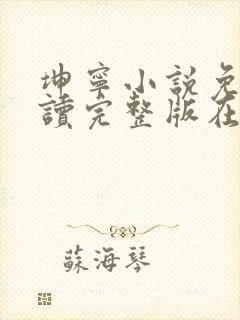 坤寧小說免
讀完整版在
蘇海琴